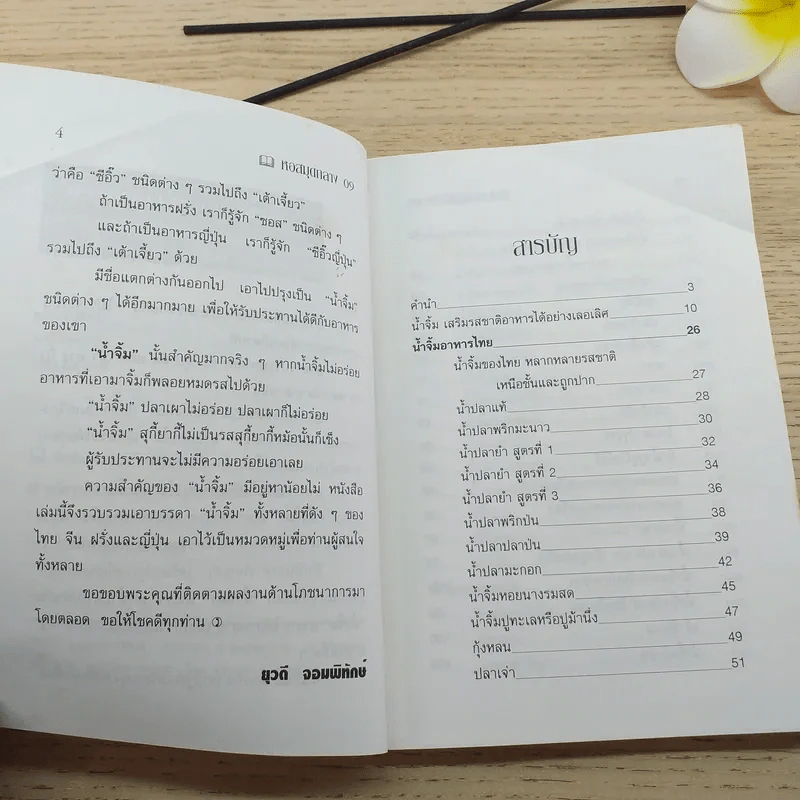 4
หอสมุดกลาง 09
ว่าคือ “ซีอิ๊ว” ชนิดต่าง ๆ รวมไปถึง “เต้าเจี้ยว”
ถ้าเป็นอาหารฝรั่ง เราก็รู้จัก “ซอส” ชนิดต่าง ๆ
และถ้าเป็นอาหารญี่ปุ่น เราก็รู้จัก “ซีอิ๊วญี่ปุ่น”
รวมไปถึง “เต้าเจี้ยว” ด้วย
มีชื่อแตกต่างกันออกไป เอาไปปรุงเป็น “น้ำจิ้ม”
ชนิดต่าง ๆ ได้อีกมากมาย เพื่อให้รับประทานได้ดีกับอาหาร
ของเขา
“น้ำจิ้ม” นั้นสำคัญมากจริง ๆ หากน้ำจิ้มไม่อร่อย
อาหารที่เอามาจิ้มก็พลอยหมดรสไปด้วย
“น้ำจิ้ม” ปลาเผาไม่อร่อย ปลาเผาก็ไม่อร่อย
“น้ำจิ้ม” สุกี้ยากี้ไม่เป็นรสสุกี้ยากี้หม้อนั้นก็เซ็ง
ผู้รับประทานจะไม่มีความอร่อยเอาเลย
ความสำคัญของ “น้ำจิ้ม” มีอยู่หาน้อยไม่ หนังสือ
เล่มนี้จึงรวบรวมเอาบรรดา “น้ำจิ้ม” ทั้งหลายที่ดัง ๆ ของ
ไทย จีน ฝรั่งและญี่ปุ่น เอาไว้เป็นหมวดหมู่เพื่อท่านผู้สนใจ
ทั้งหลาย
ขอขอบพระคุณที่ติดตามผลงานด้านโภชนาการมา
โดยตลอด ขอให้โชคดีทุกท่าน
ยุวดี จอมพิทักษ์
สารบัญ
คำนำ 3
น้ำจิ้ม เสริมรสชาติอาหารได้อย่างเลอเลิศ 10
น้ำจิ้มอาหารไทย 26
น้ำจิ้มของไทย หลากหลายรสชาติ
เหนือชั้นและถูกปาก 27
น้ำปลาแท้ 28
น้ำปลาพริกมะนาว 30
น้ำปลายำ สูตรที่ 1 32
น้ำปลายำ สูตรที่ 2 34
น้ำปลายำ สูตรที่ 3 36
น้ำปลาพริกป่น 38
น้ำปลาปลาป่น 39
น้ำปลามะกอก 42
น้ำจิ้มหอยนางรมสด 45
น้ำจิ้มปูทะเลหรือปูม้านึ่ง 47
กุ้งหลน 49
ปลาเจ่า 51